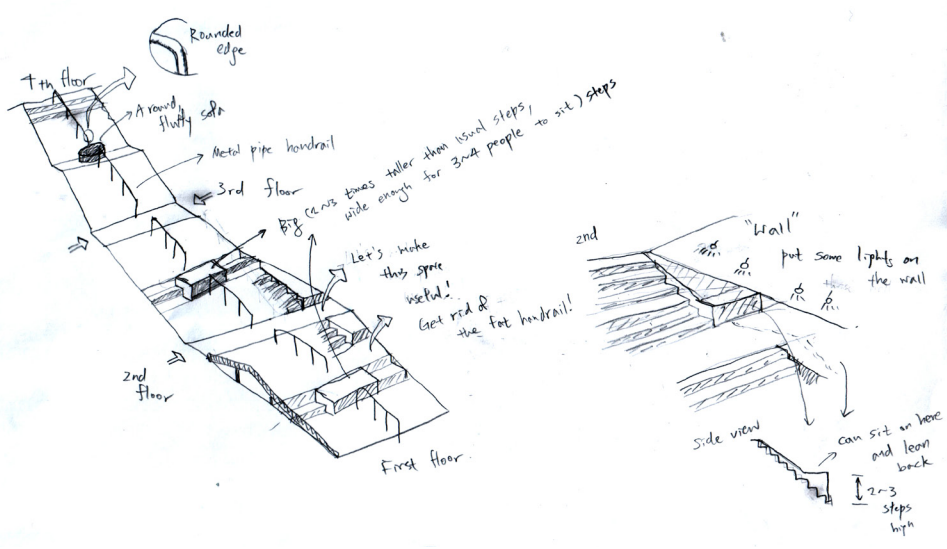 Rounded
edge
4th floor
A round,
fluffy sofa
Metal pipe handrail
3rd floor
Big (2~3 times taller than usual steps,
wide enough for 3~4 people to sit) steps
Let's make
this space
useful!
Get rid of
the fat handrail!
2nd
floor
First floor.
2nd
"Wall"
put some lights on
the wall
side view
can sit on here
and lean
back
2~3
steps
high